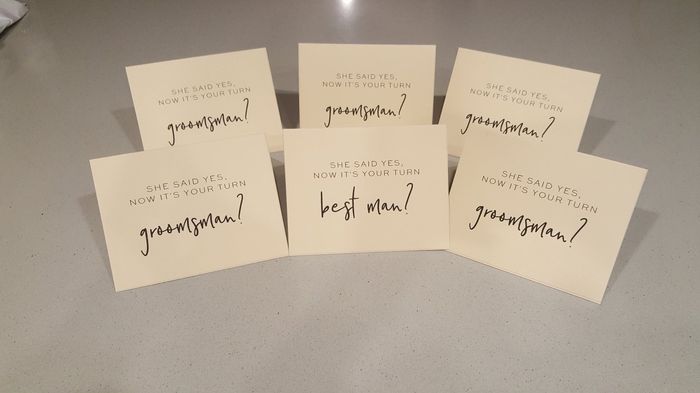 SHE SAID YES,
NOW IT'S YOUR TURN
groomsman?
SHE SAID YES,
NOW IT'S YOUR TURN
groomsman?
SHE SAID YES,
NOW IT'S YOUR TURN
groomsman?
SHE SAID YES,
NOW IT'S YOUR TURN
groomsman?
SHE SAID YES,
NOW IT'S YOUR TURN
best man?
SHE SAID YES,
NOW IT'S YOUR TURN
groomsman?